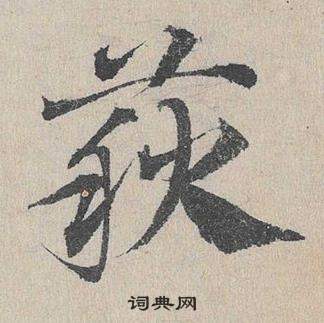 荻
词典网